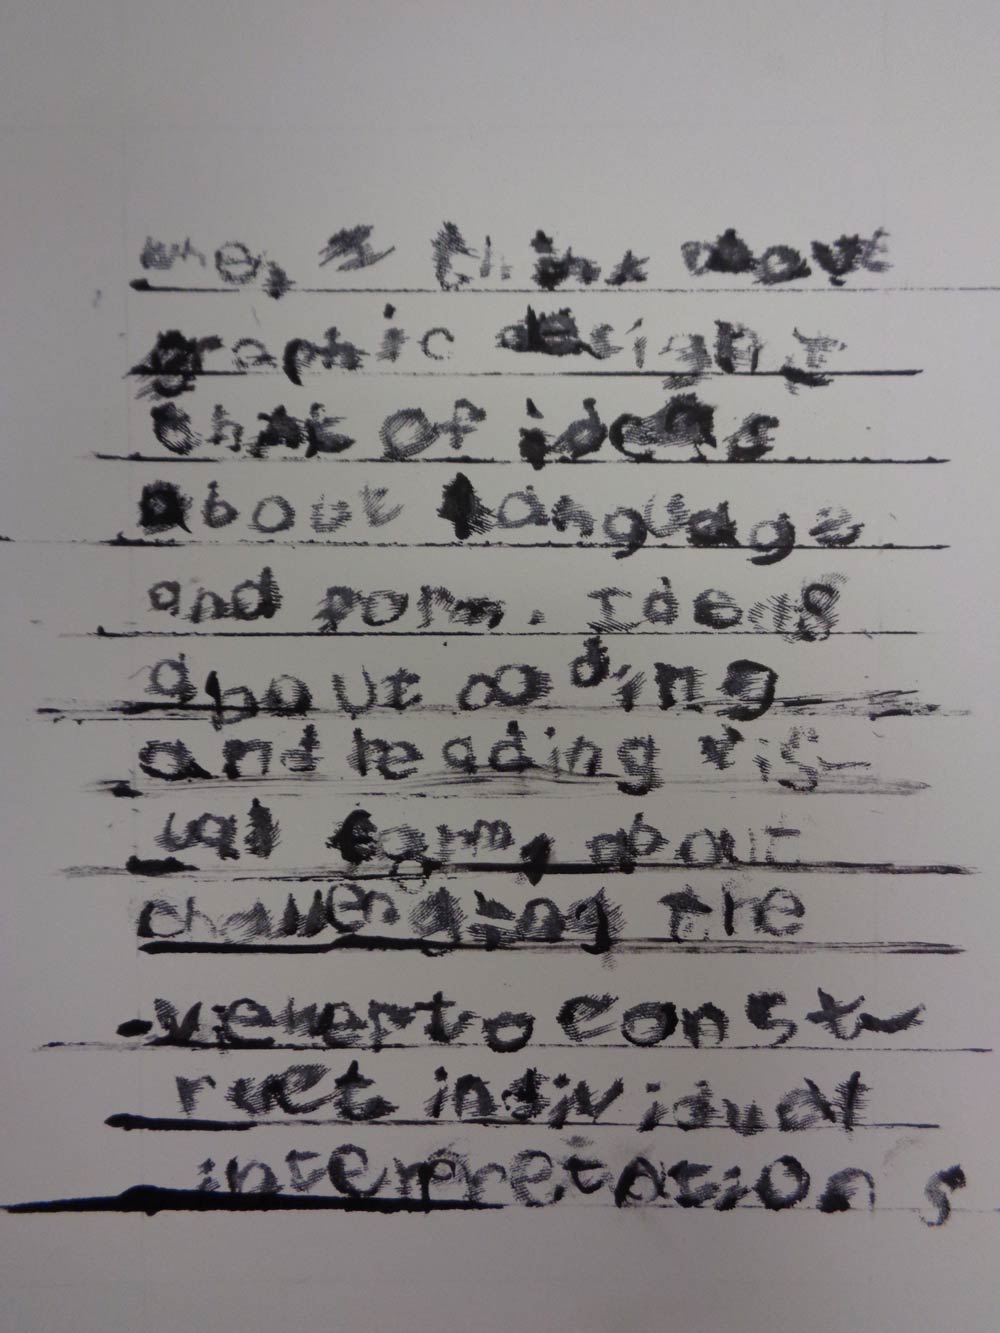 when I think about
graphic design I
that of ideas
about language
and form. Ideas
about coding
and reading vis-
ual form, about
challenging the
viewer to const-
ruct individual
interpretations